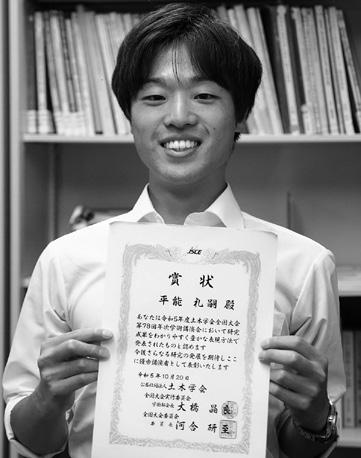 JSCE
賞状
平能 礼嗣 殿
あなたは令和5年度土木学会全国大会
第78回年次学術講演会において研究
成果をわかりやすく豊かな表現方法で
発表されたものと認めます
今後さらなる研究の発展を期待しここ
に優秀講演者として表彰いたします
令和5年10月20日
公益社団法人 土木学会
全国大会実行委員会
学術部会長 大橋 晶良
全国大会委員会
委員長 河合 研至